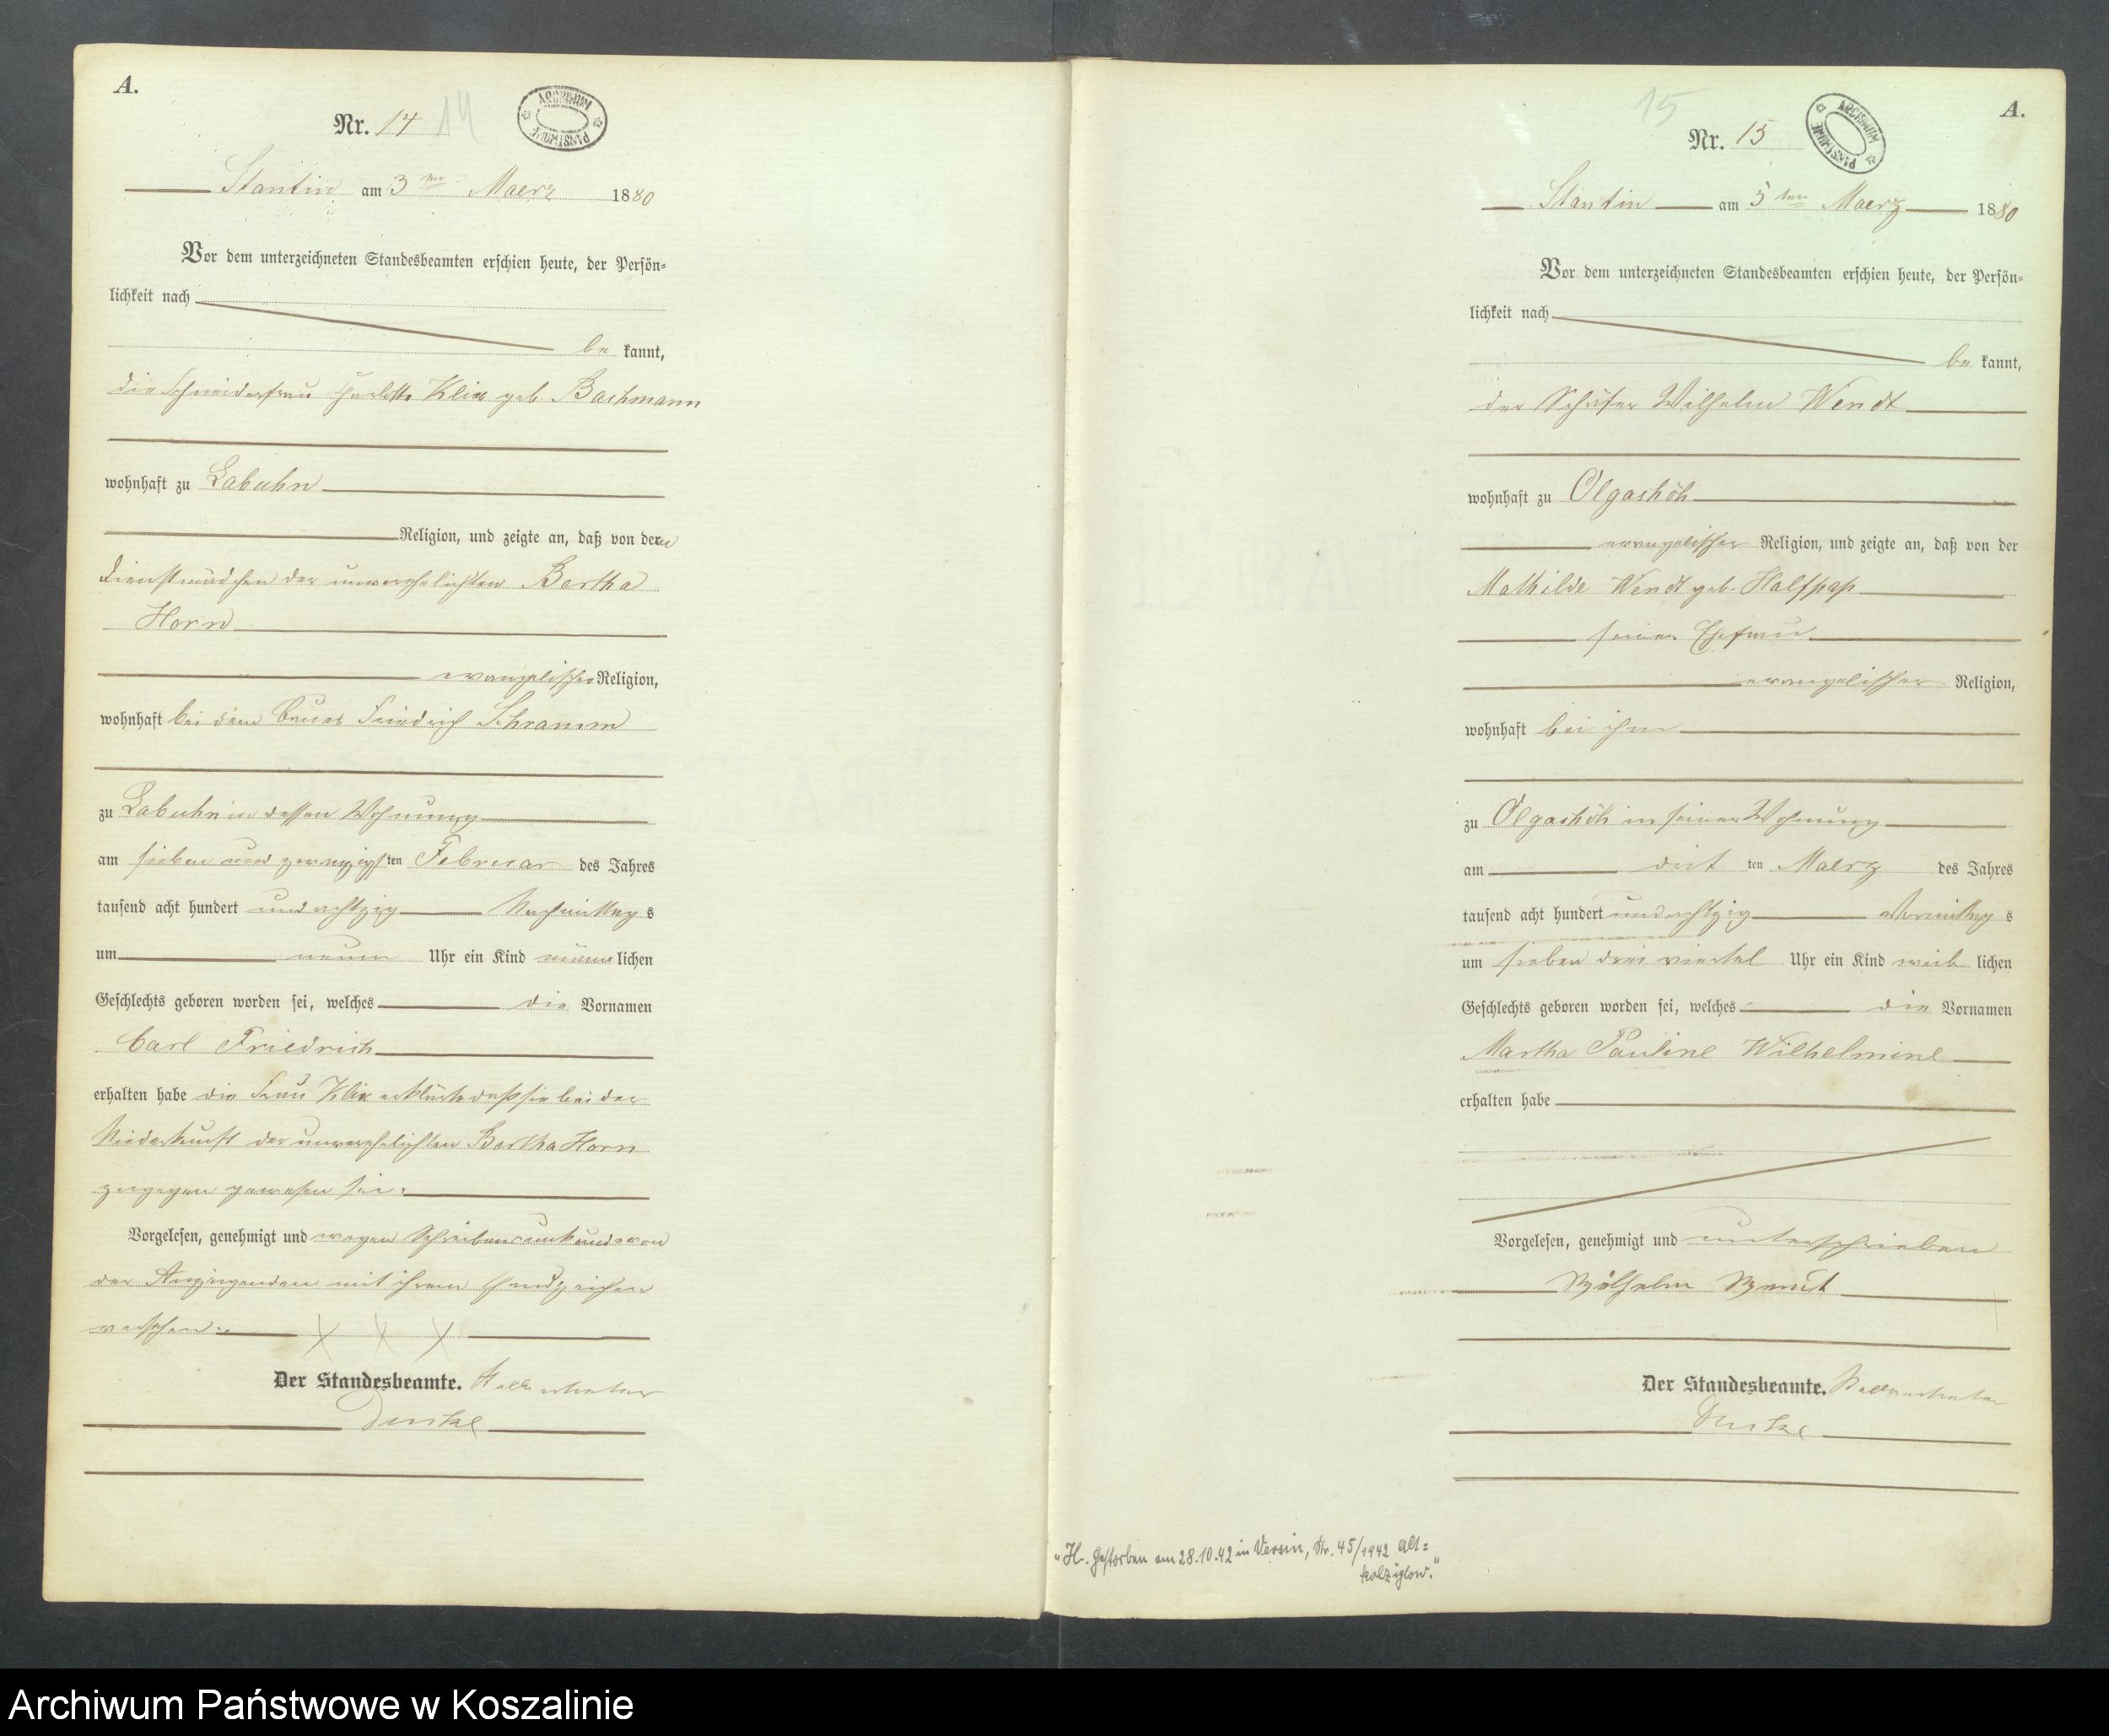 A.
Nr. 14 14
ARCHIWUM PAŃSTWOWE
Stantin am 3ten Maerz 1880
Vor dem unterzeichneten Standesbeamten erschien heute, der Persön=
lichkeit nach
be kannt,
die Schneiderfrau Charlotte Klix geb. Bachmann
wohnhaft zu Labuhn
Religion, und zeigte an, daß von dem
Dienstmädchen der unverehelichten Bertha
Horn
evangelischer Religion,
wohnhaft bei dem Bauer Friedrich Schramm
zu Labuhn in dessen Wohnung
am sieben und zwanzigsten Februar des Jahres
tausend acht hundert und achtzig Nachmittags
um neun Uhr ein Kind männlichen
Geschlechts geboren worden sei, welches die Vornamen
Carl Friedrich
erhalten habe die Frau Klix erklärte daß sie bei der
Niederkunft der unverehelichten Bertha Horn
zugegen gewesen sei.
Vorgelesen, genehmigt und wegen Schreibensunkunde von
der Anzeigenden mit ihrem Handzeichen
versehen. X X X
Der Standesbeamte. Stellvertreter
A.
15
Nr. 15
ARCHIWUM PAŃSTWOWE
Stantin am 5ten Maerz 1880
Vor dem unterzeichneten Standesbeamten erschien heute, der Persön=
lichkeit nach
be kannt,
der Schäfer Wilhelm Wendt
wohnhaft zu Olgashöh
evangelischer Religion, und zeigte an, daß von der
Mathilde Wendt geb. Halfpap
seiner Ehefrau
evangelischer Religion,
wohnhaft bei ihm
zu Olgashöh in seiner Wohnung
am dritten Maerz des Jahres
tausend acht hundert und achtzig Vormittags
um sieben drei viertel Uhr ein Kind weiblichen
Geschlechts geboren worden sei, welches die Vornamen
Martha Pauline Wilhelmine
erhalten habe
Vorgelesen, genehmigt und unterschrieben
Wilhelm Wendt
Der Standesbeamte. Stellvertreter
"H. Gestorben am 28.10.42 in Versin, Nr. 45/1942 Alt=
kolziglow."
Archiwum Państwowe w Koszalinie